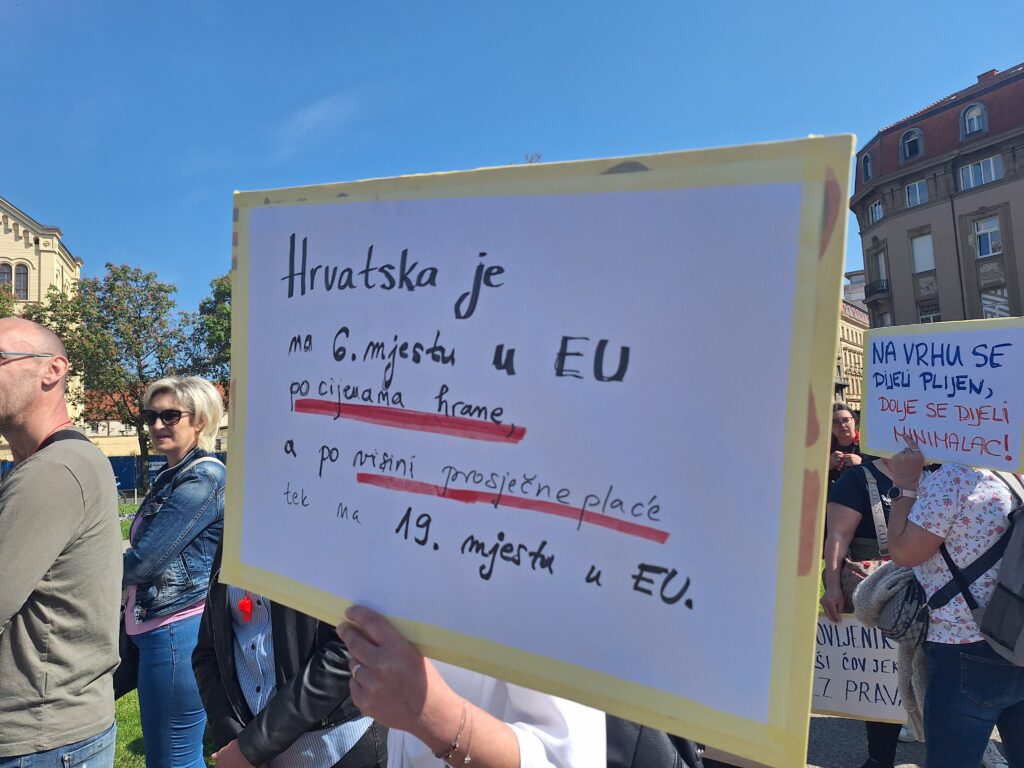 Hrvatska je
na 6. mjestu u EU
po cijenama hrane,
a po visini prosječne plaće
tek na 19. mjestu u EU.
NA VRHU SE
DIJELI PLIJEN,
DOLJE SE DIJELI
MINIMALAC!
ČOVJEK
PRAVA